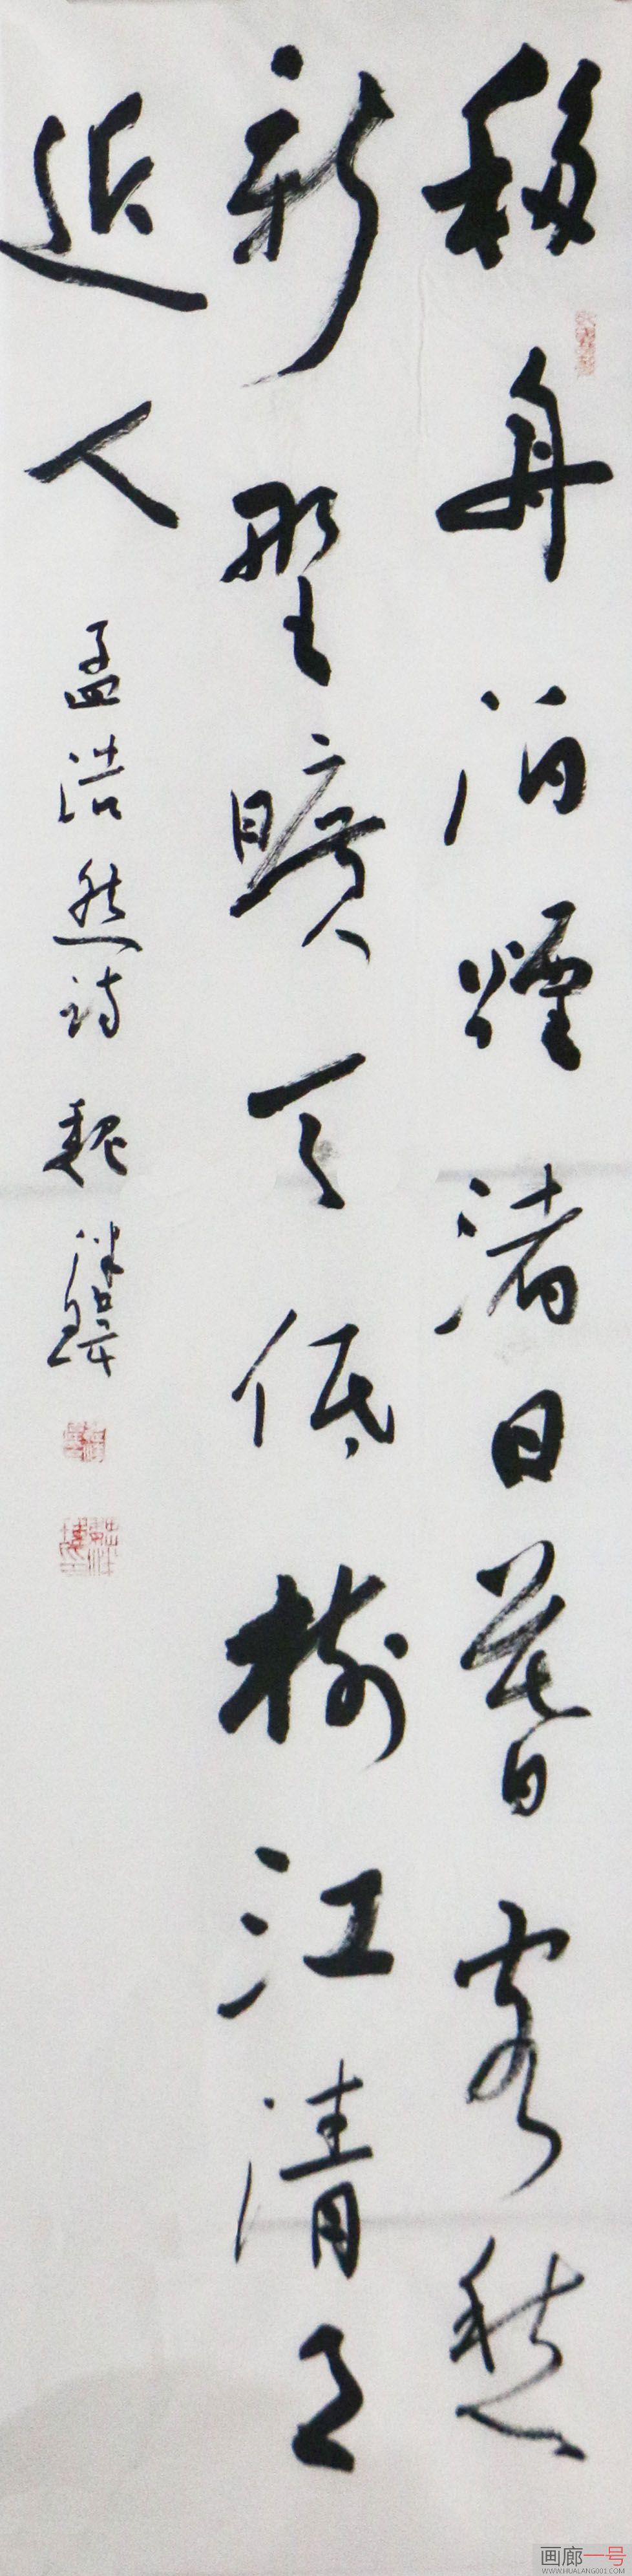 移舟泊煙渚日暮客愁
新野曠天低樹江清月
近人
孟浩然詩 魏
画廊一号
WWW.HUALANG001.COM